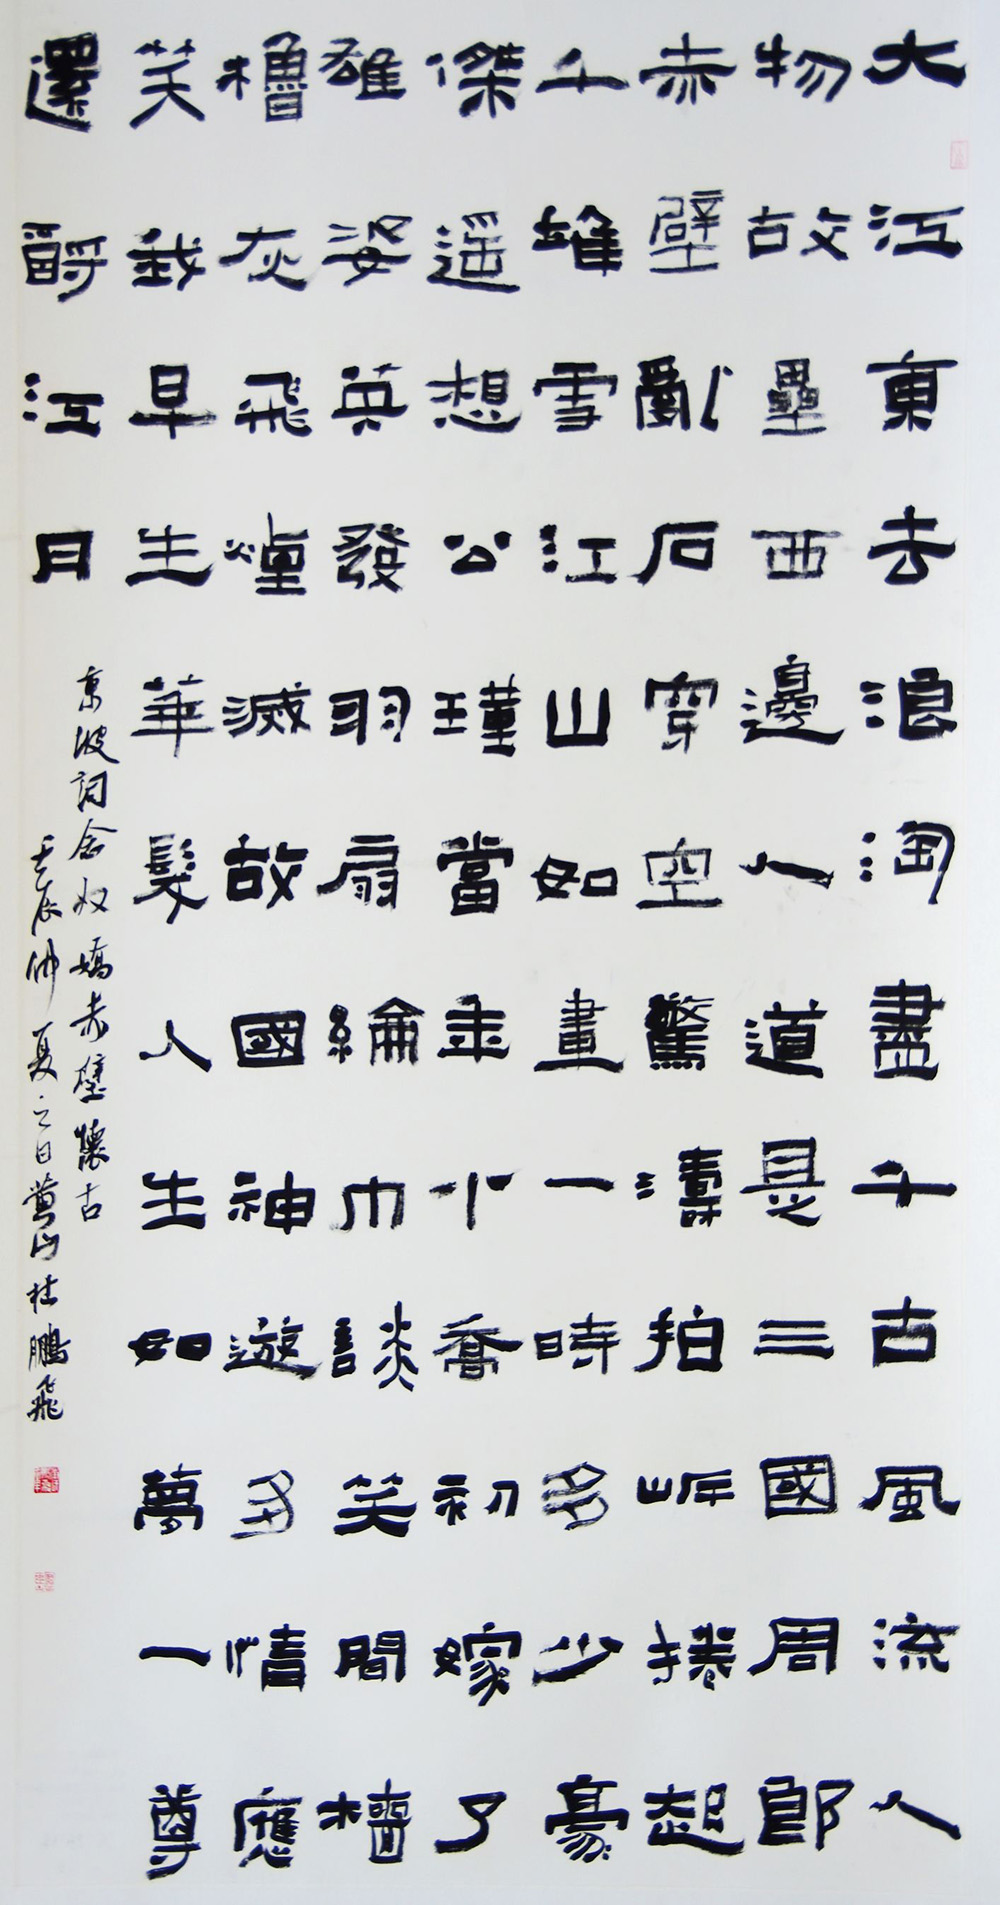 大江東去浪淘盡千古風流人
物故壘西邊人道是三國周郎
赤壁亂石穿空驚濤拍岸捲起
千堆雪江山如畫一時多少豪
傑遥想公瑾當年小喬初嫁了
雄姿英發羽扇綸巾談笑間檣
櫓灰飛煙滅故國神遊多情應
笑我早生華髮人生如夢一尊
還酹江月
東坡詞念奴嬌赤壁懷古
壬辰仲夏之日萬山杜鵬飛